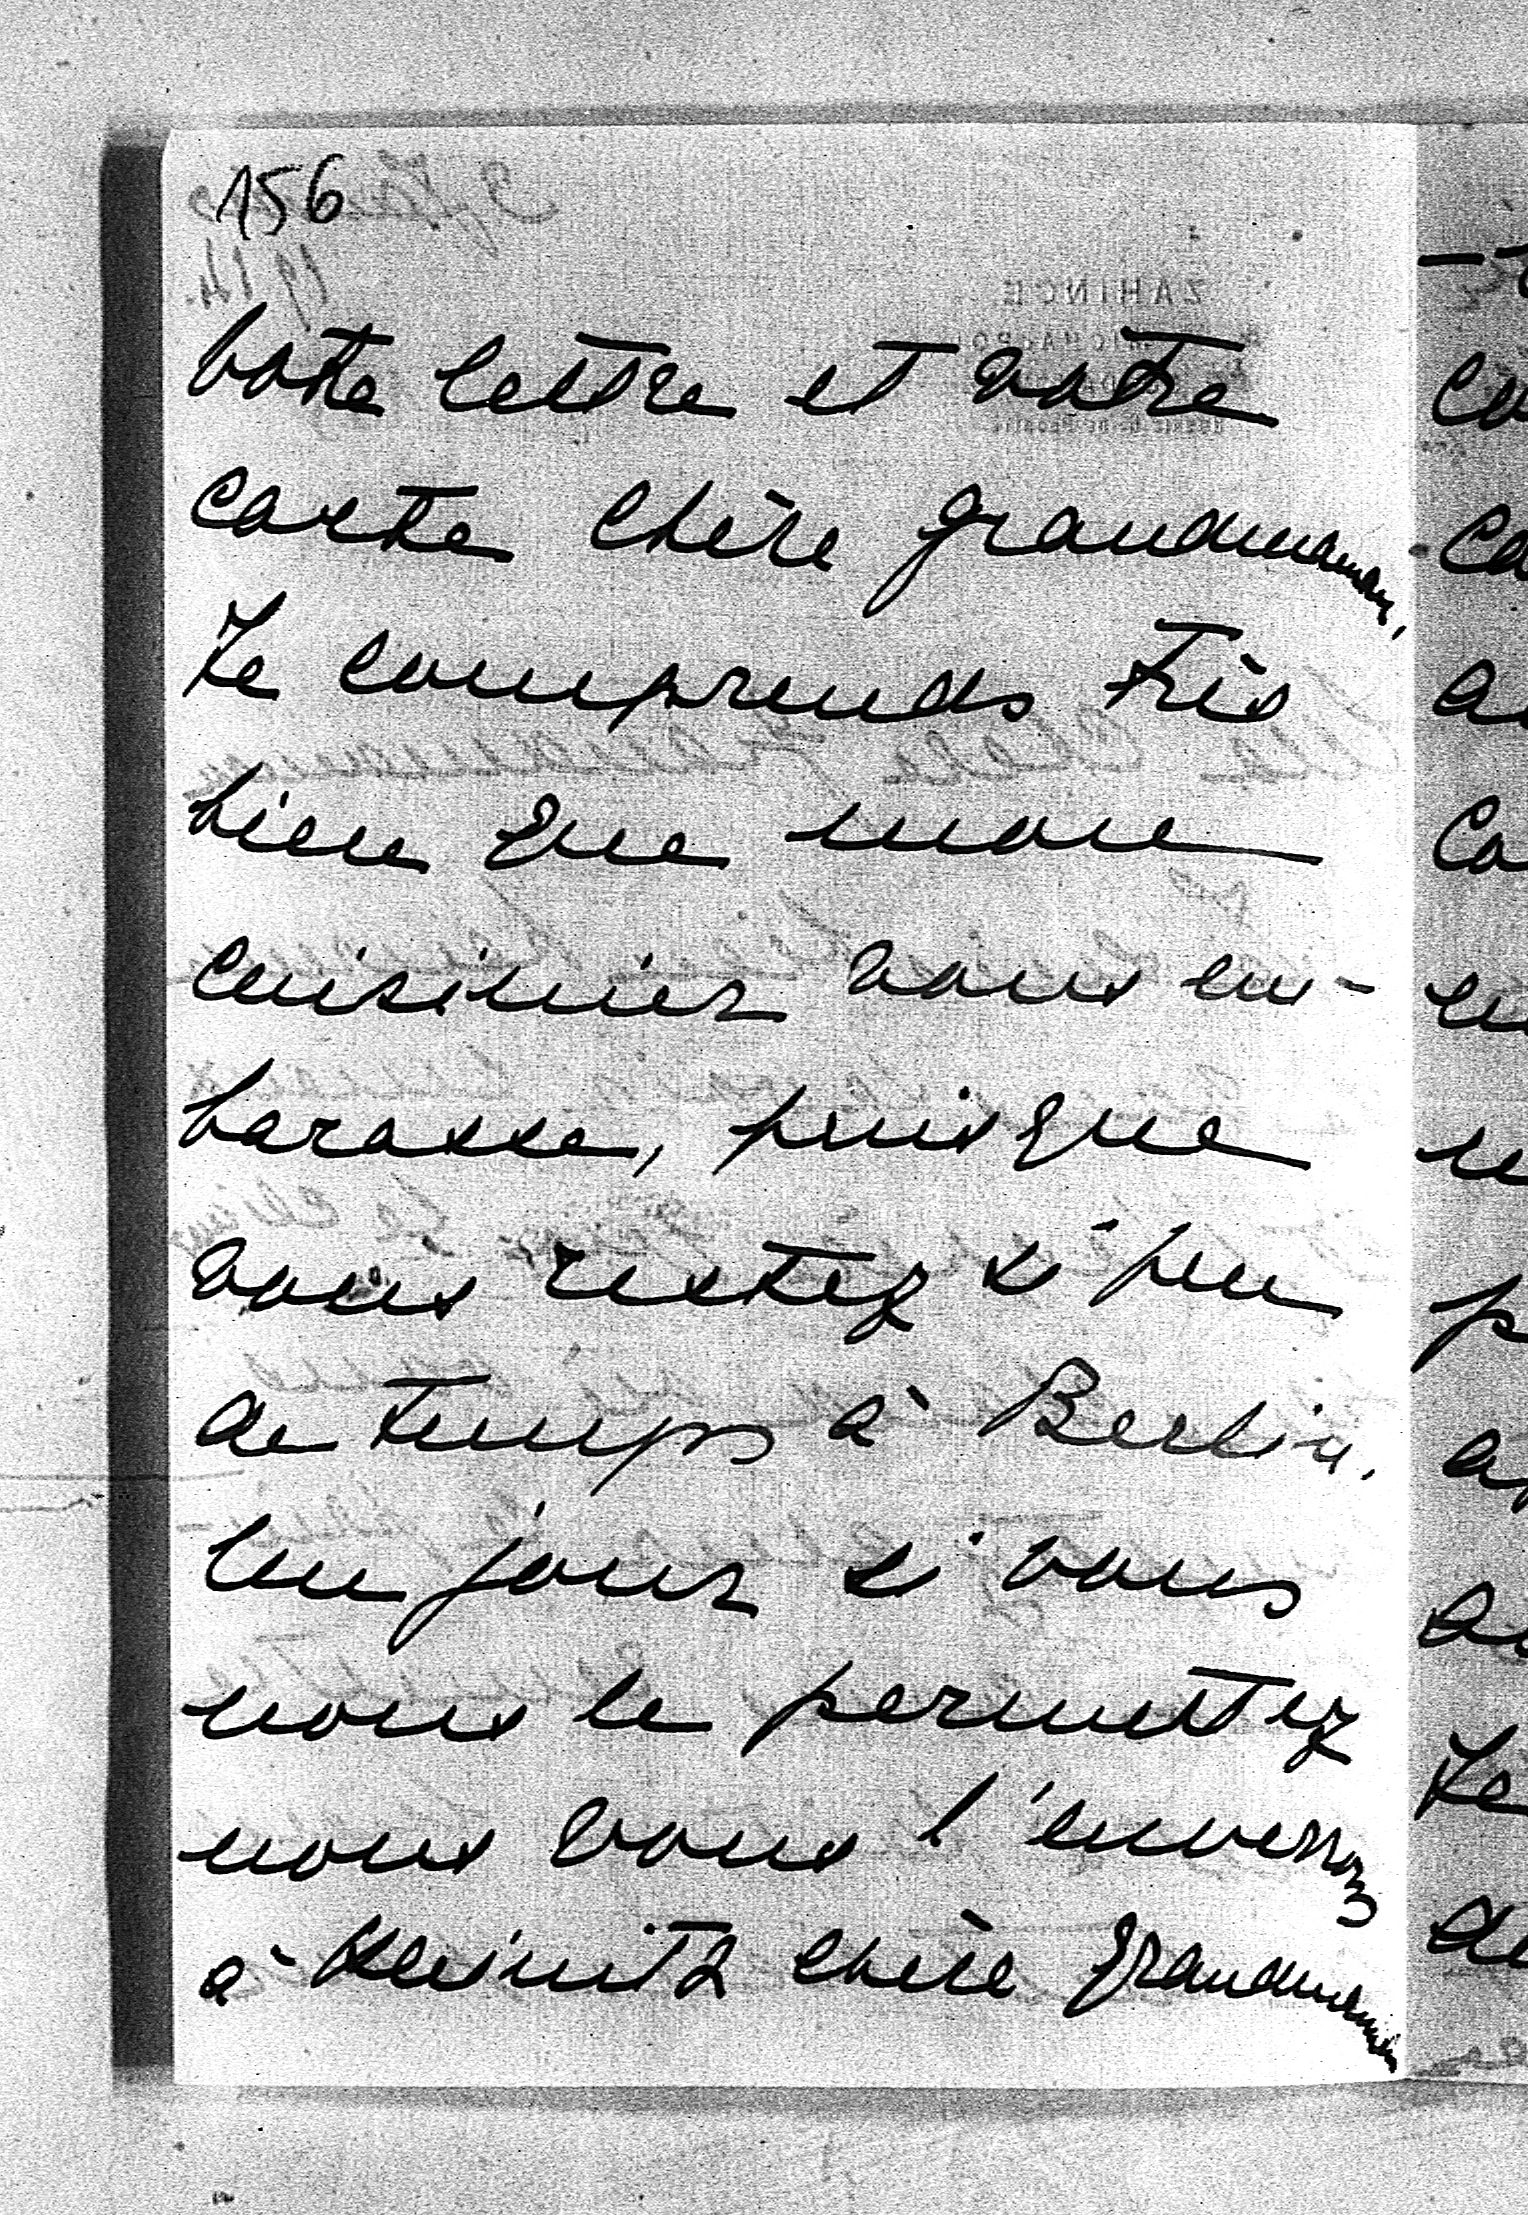 156
votre lettre et votre
carte chère grandmaman,
Je comprends très
bien que mon
cuisinier vous em-
barasse, puisque
vous restez si peu
de temps à Berlin.
Un jour si vous
nous le permettez
nous vous l'enverrons
à Kleinitz chère grandmaman